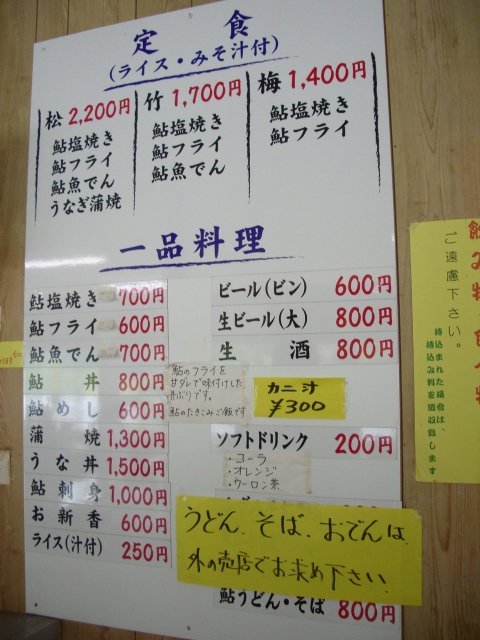 定食
(ライス・みそ汁付)
松 2,200円
鮎塩焼き
鮎フライ
鮎魚でん
うなぎ蒲焼
竹 1,700円
鮎塩焼き
鮎フライ
鮎魚でん
梅 1,400円
鮎塩焼き
鮎フライ
一品料理
鮎塩焼き 700円
鮎フライ 600円
鮎魚でん 700円
鮎丼 800円
鮎めし 600円
蒲焼 1,300円
うな丼 1,500円
鮎刺身 1,000円
お新香 600円
ライス(汁付) 250円
鮎のフライを
甘ダレで味付けした
丼ぶりです。
鮎のたきこみご飯です
ビール(ビン) 600円
生ビール(大) 800円
生酒 800円
カニ汁
¥300
ソフトドリンク 200円
・コーラ
・オレンジ
・ウーロン茶
うどん、そば、おでんは、
外の売店でお求め下さい。
鮎うどん・そば 800円
ご遠慮下さい。
持込まれた場合は、
持込み料を徴収致します。